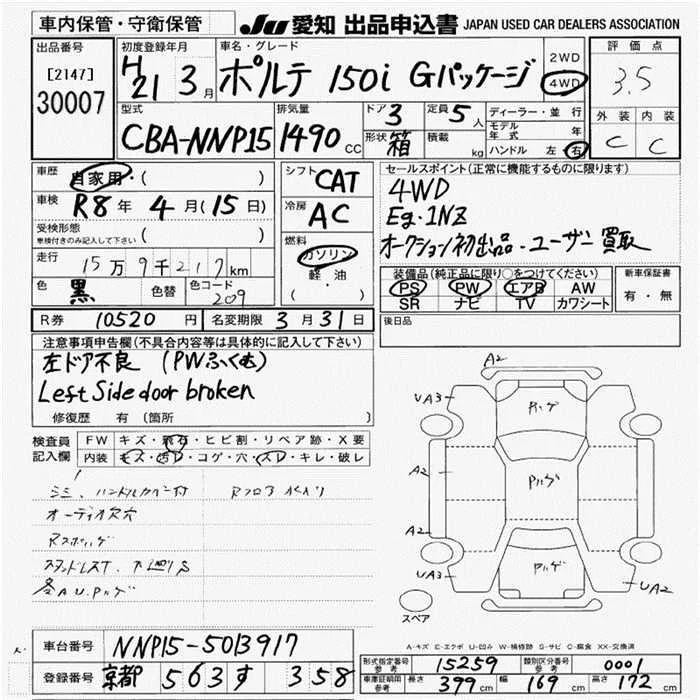 車内保管・守衛保管
JU 愛知 出品申込書 JAPAN USED CAR DEALERS ASSOCIATION
出品番号
[2147]
30007
初度登録年月
H21 3月
車名・グレード
ポルテ 150i Gパッケージ
2WD
4WD
評価点
3.5
外装 内装
C C
型式
CBA-NNP15
排気量
1490 cc
ドア 3
形状 箱
定員 5 人
積載 kg
ディーラー・並行
モデル年式 年
ハンドル 左・右
車歴 自家用・( )
車検 R8年 4月(15日)
受検形態
車検付きのみ記入して下さい ( )
走行 15万9千217km
色 黒 色替 色コード 209
シフト CAT
冷房 AC
燃料
ガソリン
軽・油
( )
セールスポイント(正常に機能するものに限ります)
4WD
Eg.1NZ
オークション初出品・ユーザー買取
装備品(純正品に限り○をつけてください)
PS PW エアB AW
SR ナビ TV カワシート
新車保証書
有・無
R券 10520円 名変期限 3月31日
後日品
注意事項申告欄(不具合内容等は具体的に記入して下さい)
左ドア不良 (PWふくむ)
Left Side door broken
修復歴 有(箇所 )
検査員記入欄
FW キズ・飛石・ヒビ割・リペア跡・X要
内装 キズ・汚れ・コゲ・穴・スレ・キレ・破レ
シミ、ハンドルカバー付
オーディオ欠穴
A2
UA3
A2
A2
UA3
UA2
スペア
A-キズ E-エクボ U-凹み W-補修跡 S-サビ C-腐食 XX-交換済
車台番号 NNP15-5013917
登録番号 京都 563 す 358
形式指定番号 参考 15259 類別区分番号 参考 0001
車庫証明用 参考 長さ 399cm 幅 169cm 高さ 172cm